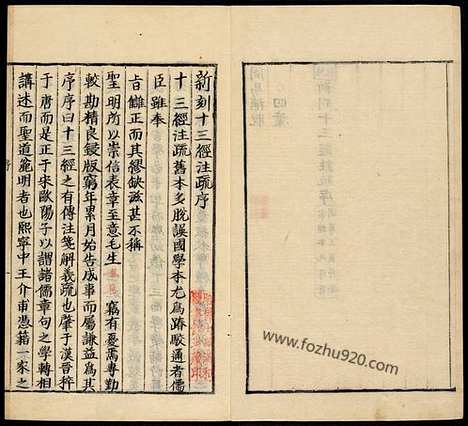 新刻十三經注疏序
十三經注疏舊本多脫誤國學本尤為踳駁通者儒
臣雖奉
旨讎正而繆缺滋甚不稱
聖明所以崇信表章至意毛生鳳苞竊有憂焉專勤
較勘精良鋟版窮年累月始告成事而屬謙益為其
序序曰十三經之有傳注箋解義疏也肇于漢晉粹
于唐而是正于宋歐陽子以謂諸儒章句之學轉相
講述而聖道麤明者也熙寧中王介甫憑藉一家之
www.fozhu920.com